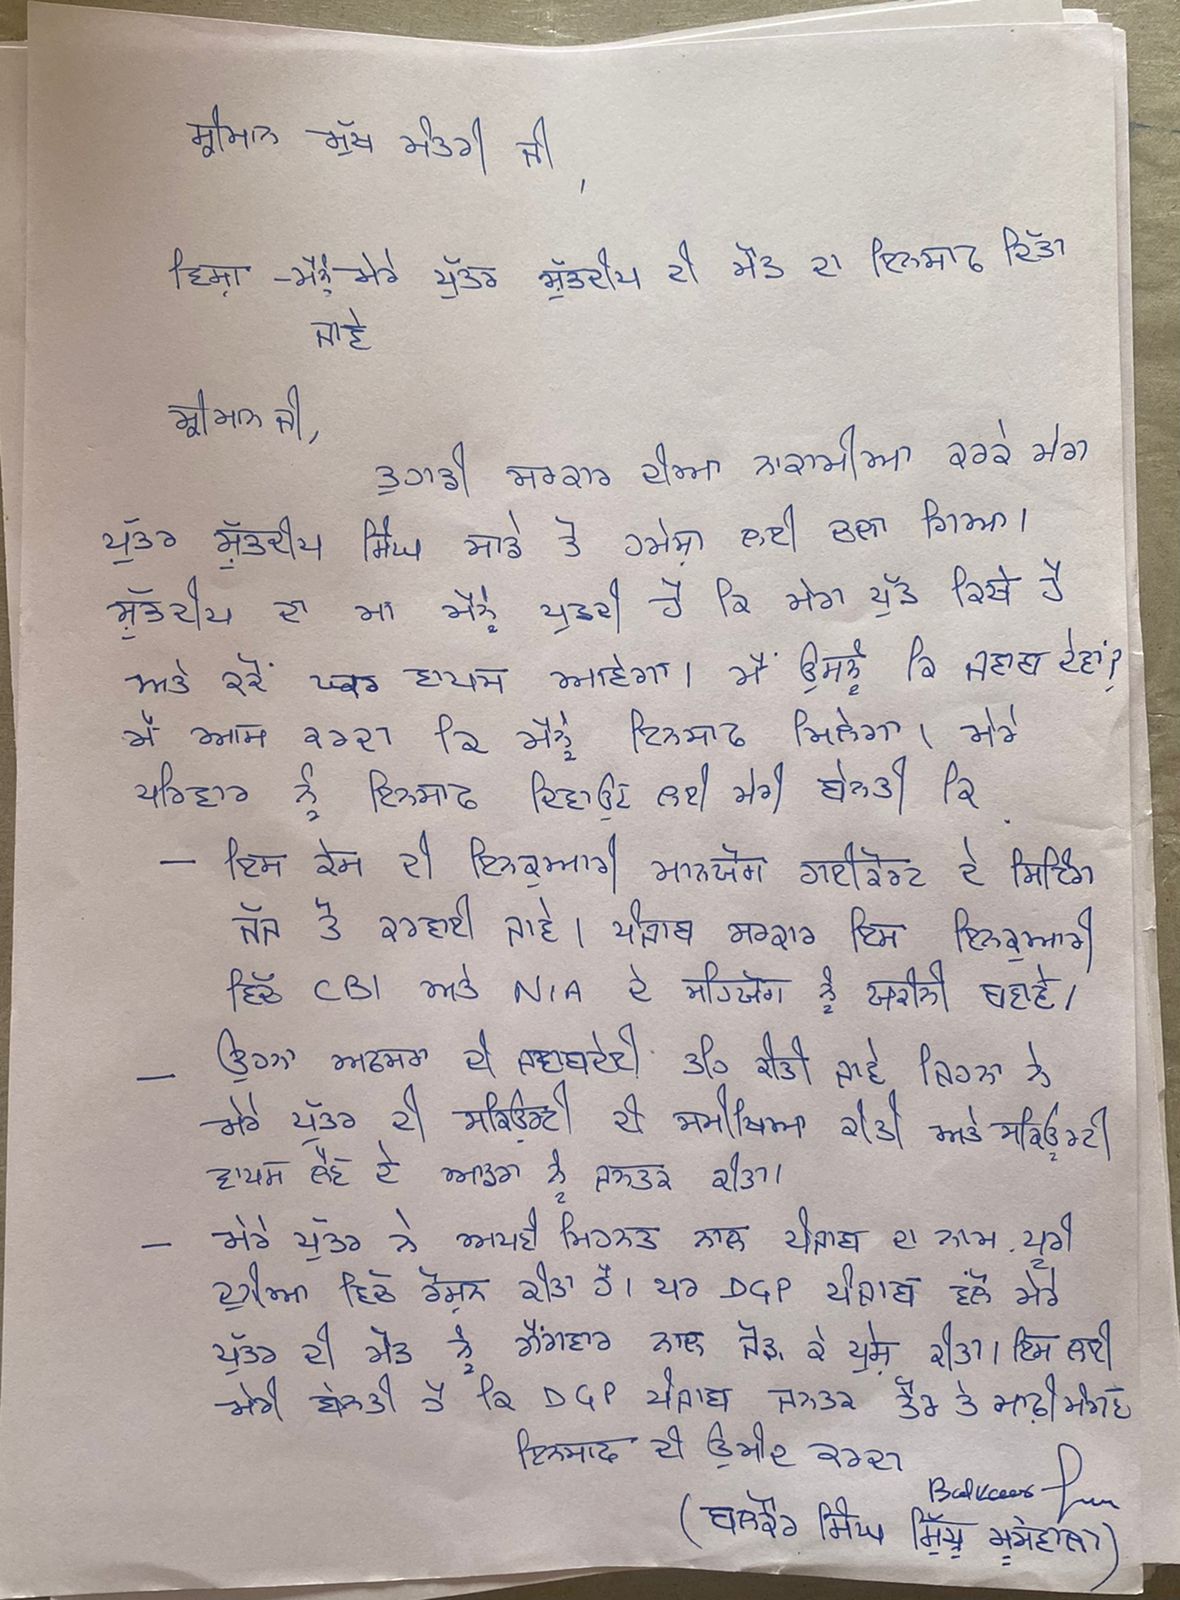 ਸ਼੍ਰੀਮਾਨ ਮੁੱਖ ਮੰਤਰੀ ਜੀ,
ਵਿਸ਼ਾ - ਮੈਨੂੰ ਮੇਰੇ ਪੁੱਤਰ ਸ਼ੁੱਭਦੀਪ ਦੀ ਮੌਤ ਦਾ ਇਨਸਾਫ ਦਿੱਤਾ
ਜਾਵੇ
ਸ਼੍ਰੀਮਾਨ ਜੀ,
ਤੁਹਾਡੀ ਸਰਕਾਰ ਦੀਆ ਨਾਕਾਮੀਆ ਕਰਕੇ ਮੇਰਾ
ਪੁੱਤਰ ਸ਼ੁੱਭਦੀਪ ਸਿੰਘ ਸਾਡੇ ਤੋ ਹਮੇਸ਼ਾ ਲਈ ਚਲਾ ਗਿਆ।
ਸ਼ੁੱਭਦੀਪ ਦਾ ਮਾ ਮੈਨੂੰ ਪੁਛਦੀ ਹੈ ਕਿ ਮੇਰਾ ਪੁੱਤ ਕਿਥੇ ਹੈ
ਅਤੇ ਕਦੋਂ ਵਾਪਸ ਆਵੇਗਾ। ਮੈਂ ਉਸਨੂੰ ਕਿ ਜਵਾਬ ਦੇਵਾਂ?
ਮੈਂ ਆਸ ਕਰਦਾ ਕਿ ਮੈਨੂੰ ਇਨਸਾਫ ਮਿਲੇਗਾ। ਮੇਰੇ
ਪਰਿਵਾਰ ਨੂੰ ਇਨਸਾਫ ਦਿਵਾਉਣ ਲਈ ਮੇਰੀ ਬੇਨਤੀ ਕਿ
- ਇਸ ਕੇਸ ਦੀ ਇਨਕੁਆਰੀ ਮਾਨਯੋਗ ਹਾਈਕੋਰਟ ਦੇ ਸਿਟਿੰਗ
ਜੱਜ ਤੋ ਕਰਵਾਈ ਜਾਵੇ। ਪੰਜਾਬ ਸਰਕਾਰ ਇਸ ਇਨਕੁਆਰੀ
ਵਿਚ CBI ਅਤੇ NIA ਦੇ ਸਹਿਯੋਗ ਨੂੰ ਯਕੀਨੀ ਬਣਾਵੇ।
- ਉਹਨਾ ਅਫਸਰਾ ਦੀ ਜਵਾਬਦੇਹੀ ਤਹਿ ਕੀਤੀ ਜਾਵੇ ਜਿਹਨਾ ਨੇ
ਮੇਰੇ ਪੁੱਤਰ ਦੀ ਸਕਿਉਰਟੀ ਦੀ ਸਮੀਖਿਆ ਕੀਤੀ ਅਤੇ ਸਕਿਉਰਟੀ
ਵਾਪਸ ਲੈਣ ਦੇ ਆਡਰਾ ਨੂੰ ਜਨਤਕ ਕੀਤਾ।
- ਮੇਰੇ ਪੁੱਤਰ ਨੇ ਅਪਣੀ ਮਿਹਨਤ ਨਾਲ ਪੰਜਾਬ ਦਾ ਨਾਮ ਪੂਰੀ
ਦੁਨੀਆ ਵਿਚ ਰੋਸ਼ਨ ਕੀਤਾ ਹੈ। ਪਰ DGP ਪੰਜਾਬ ਵੱਲੋ ਮੇਰੇ
ਪੁੱਤਰ ਦੀ ਮੌਤ ਨੂੰ ਗੈਂਗਵਾਰ ਨਾਲ ਜੋੜ ਕੇ ਪੇਸ਼ ਕੀਤਾ। ਇਸ ਲਈ
ਮੇਰੀ ਬੇਨਤੀ ਹੈ ਕਿ DGP ਪੰਜਾਬ ਜਨਤਕ ਤੌਰ ਤੇ ਮਾਫ਼ੀ ਮੰਗਣ
ਇਨਸਾਫ ਦੀ ਉਮੀਦ ਕਰਦਾ
Balkaur
(ਬਲਕੌਰ ਸਿੰਘ ਸਿੱਧੂ ਮੂਸੇਵਾਲਾ)